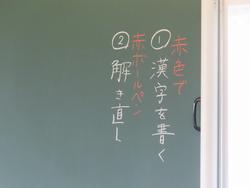 赤色で
①漢字を書く
赤ボールペン
②解き直し